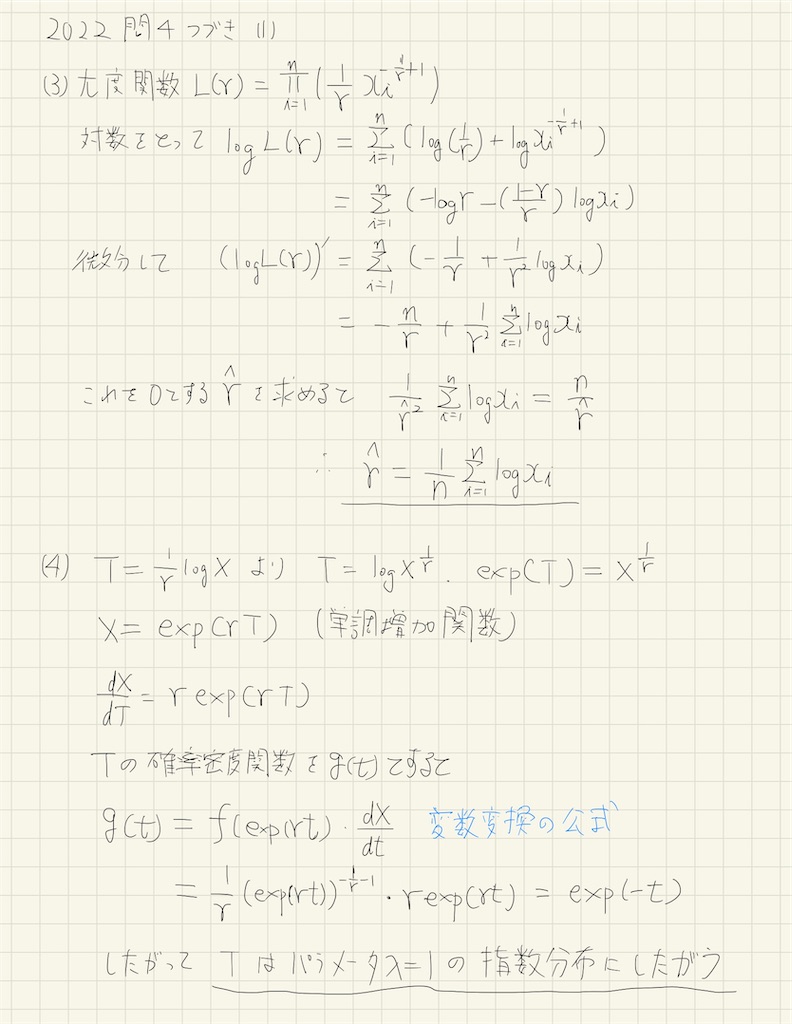 2022 問4 つづき (1)
(3) 尤度関数 L(γ) = ∏_{i=1}^{n} ( 1/γ x_i^{-1/γ+1} )
対数をとって log L(γ) = Σ_{i=1}^{n} ( log(1/γ) + log x_i^{-1/γ+1} )
= Σ_{i=1}^{n} ( -logγ - ((1-γ)/γ) log x_i )
微分して (log L(γ))' = Σ_{i=1}^{n} ( -1/γ + 1/γ² log x_i )
= -n/γ + 1/γ² Σ_{i=1}^{n} log x_i
これを0とする γ̂ を求めると 1/γ̂² Σ_{i=1}^{n} log x_i = n/γ̂
∴ γ̂ = 1/n Σ_{i=1}^{n} log x_i
(4) T = 1/γ log X より T = log X^{1/γ}. exp(T) = X^{1/γ}
X = exp(γT) (単調増加関数)
dX/dT = γ exp(γT)
Tの確率密度関数を g(t) とすると
g(t) = f(exp(γt) · dX/dt 変数変換の公式
= 1/γ (exp(γt))^{-1/γ-1} · γ exp(γt) = exp(-t)
したがって T は パラメータλ=1 の 指数分布にしたがう